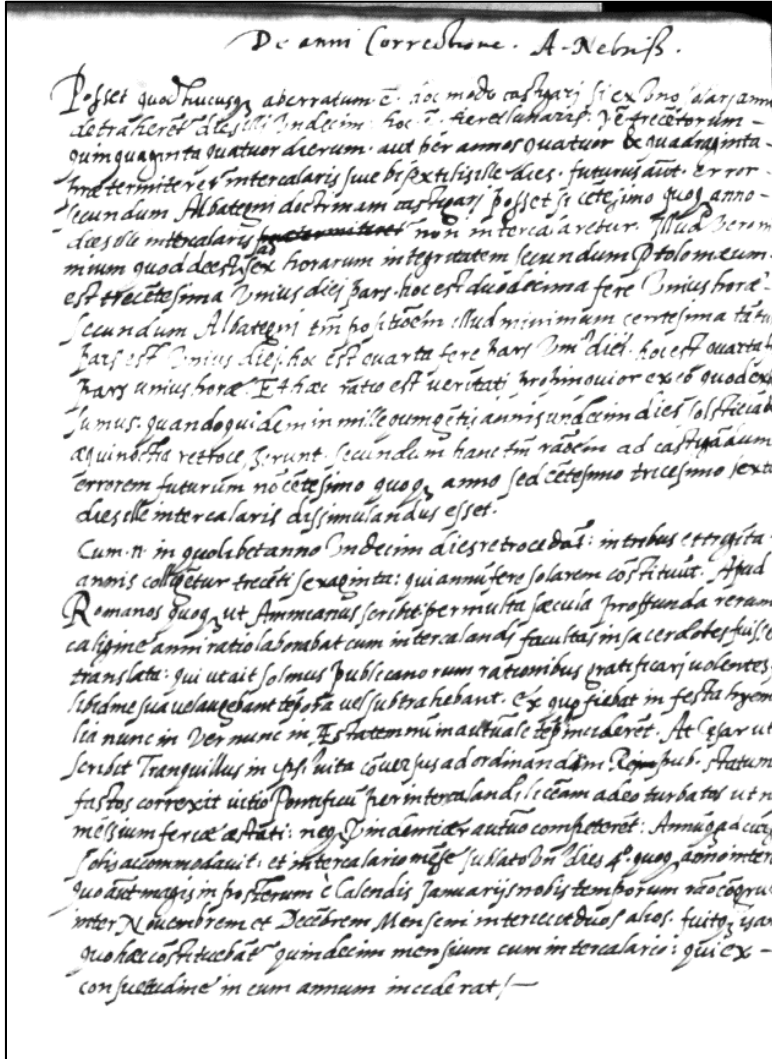 De anni Correctione. A. Nebriss.
Posset quod hucusq3 aberratum ē. hoc modo castigarj si ex uno solarj anno
detraherēt dies illi undecim: hoc ē. fieret lunaris: trecētorum -
quinquaginta quatuor dierum. aut per annos quatuor & quadraginta -
prætermiteret intercalaris sive bisextilis ille dies. futurus aūt. error -
secundum Albategni doctrinam castigarj posset si cētesimo quoq3 anno -
dies ille intercalaris non intercalaretur. Illud
minium quod deest ad sex horarum integritatem secundum Ptolomæum.
est trecētesima unius diej pars. hoc est duodecima fere unius horæ.
Secundum Albategni tm̄ positiōēm illud minimum centesima
pars est unius diej. hoc est quarta fere pars diei. hoc est quarta
pars unius horæ. Et hæc ratio est veritati propinquior ex eo quod
sumus. quandoquidem in mille annis undecim dies solsticia
æquinoctia retrocesserunt. secundum hanc tm̄ rāōēm ad castigādum
errorem futurum nō cētesimo quoq3 anno sed cētesimo tricesimo sexto
dies ille intercalaris dissimulandus esset.
Cum .n. in quolibet anno undecim dies retrocedāt: in tribus et trigīta
annis colligētur trecēti sexaginta: qui annū fere solarem cōstituūt. Apud
Romanos quoq3 ut Ammianus scribit per multa sæcula profunda rerum
caligine anni ratio laborabat cum intercalandj facultas in sacerdotes fuisse
translata: qui ut ait solinus publicanorum rationibus gratificarj volentes
libidine sua vel augebant tēpora vel subtrahebant. Ex quo fiebat in festa hyem
lia nunc in ver nunc in Estatem nūc in autūale inciderēt. At Cęsar ut
scribit Tranquillus in ips. vita cōversus ad ordinandum Reip pub. statum
fastos correxit vitio Pontificū per intercalandi licēam adeo turbatos ut n
messium feriæ æstati: neq3 vindemiæ autūo competerēt: Annūq3 ad cur
solis accommodavit: et intercalario mēse sublato un̄ dies 4o. quoq3 anno inter
quo aūt magis in posterum ē Calendis Januarijs nobis temporum rāo cōgru
inter Novembrem et Decēbrem Mensem interiecit duos alios. fuitq3 is an
quo hæc cōstituebāt quindecim mensium cum intercalario: qui ex -
consuetudine in eum annum inciderat / -